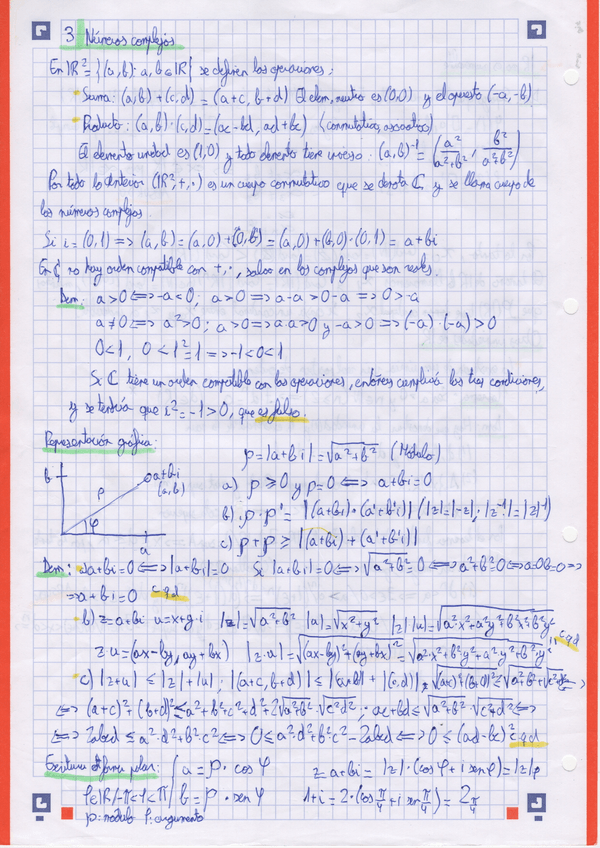 3 Números complejos
En ℝ² = {(a,b): a,b ∈ ℝ} se definen las operaciones:
Suma: (a,b) + (c,d) = (a+c, b+d) El elem. neutro es (0,0) y el opuesto (-a,-b)
Producto: (a,b)·(c,d) = (ac-bd, ad+bc) (conmutativa, asociativa)
El elemento unidad es (1,0) y todo elemento tiene inverso: (a,b)⁻¹ = (a²/(a²+b²), b²/(a²+b²))
Por todo lo anterior (ℝ²,+,·) es un cuerpo conmutativo que se denota ℂ y se llama cuerpo de
los números complejos
Si i = (0,1) => (a,b) = (a,0) + (0,b) = (a,0) + (b,0)·(0,1) = a+bi
En ℂ no hay orden compatible con +,·, salvo en los complejos que son reales.
Dem: a>0 <=> -a<0; a>0 => a-a>0-a => 0>-a
a≠0 => a²>0; a>0 => a·a>0 y -a>0 => (-a)·(-a)>0
0<1, 0<1²=1 => -1<0<1
Si ℂ tiene un orden compatible con las operaciones, entonces cumplirá las tres condiciones,
y se tendría que i²=-1>0, que es falso.
Representación gráfica:
ρ = |a+bi| = √(a²+b²) (Módulo)
b a+bi (a,b) ρ φ a
a) ρ ≥ 0 y ρ=0 <=> a+bi=0
b) ρ·ρ' = |(a+bi)·(a'+b'i)| (|z|=|-z|; |z⁻¹|=|z|⁻¹)
c) ρ+ρ ≥ |(a+bi)+(a'+b'i)|
Dem: a) a+bi=0 <=> |a+bi|=0 Si |a+bi|=0 <=> √(a²+b²)=0 <=> a²+b²=0 <=> a=0 b=0 =>
=> a+bi=0 cqd
b) z=a+bi u=x+y·i |z|=√(a²+b²) |u|=√(x²+y²) |z||u|=√(a²x²+a²y²+b²x²+b²y²)
z·u=(ax-by, ay+bx) |z·u|=√((ax-by)²+(ay+bx)²)=√(a²x²+b²y²+a²y²+b²x²) cqd
c) |z+u| ≤ |z|+|u|; |(a+c, b+d)| ≤ |(a,b)|+|(c,d)|
<=> (a+c)²+(b+d)² ≤ a²+b²+c²+d²+2√(a²+b²)·√(c²+d²); ac+bd ≤ √(a²+b²)·√(c²+d²) <=>
<=> 2abcd ≤ a²·d²+b²·c² <=> 0 ≤ a²d²+b²c²-2abcd <=> 0 ≤ (ad-bc)² cqd
Escritura de forma polar: { a = ρ · cos φ z=a+bi = |z|·(cos φ + i sen φ) = |z|φ
φ∈ℝ/-π<φ<π { b = ρ · sen φ 1+i = 2·(cos π/4 + i sen π/4) = 2 π/4
ρ: módulo φ: argumento